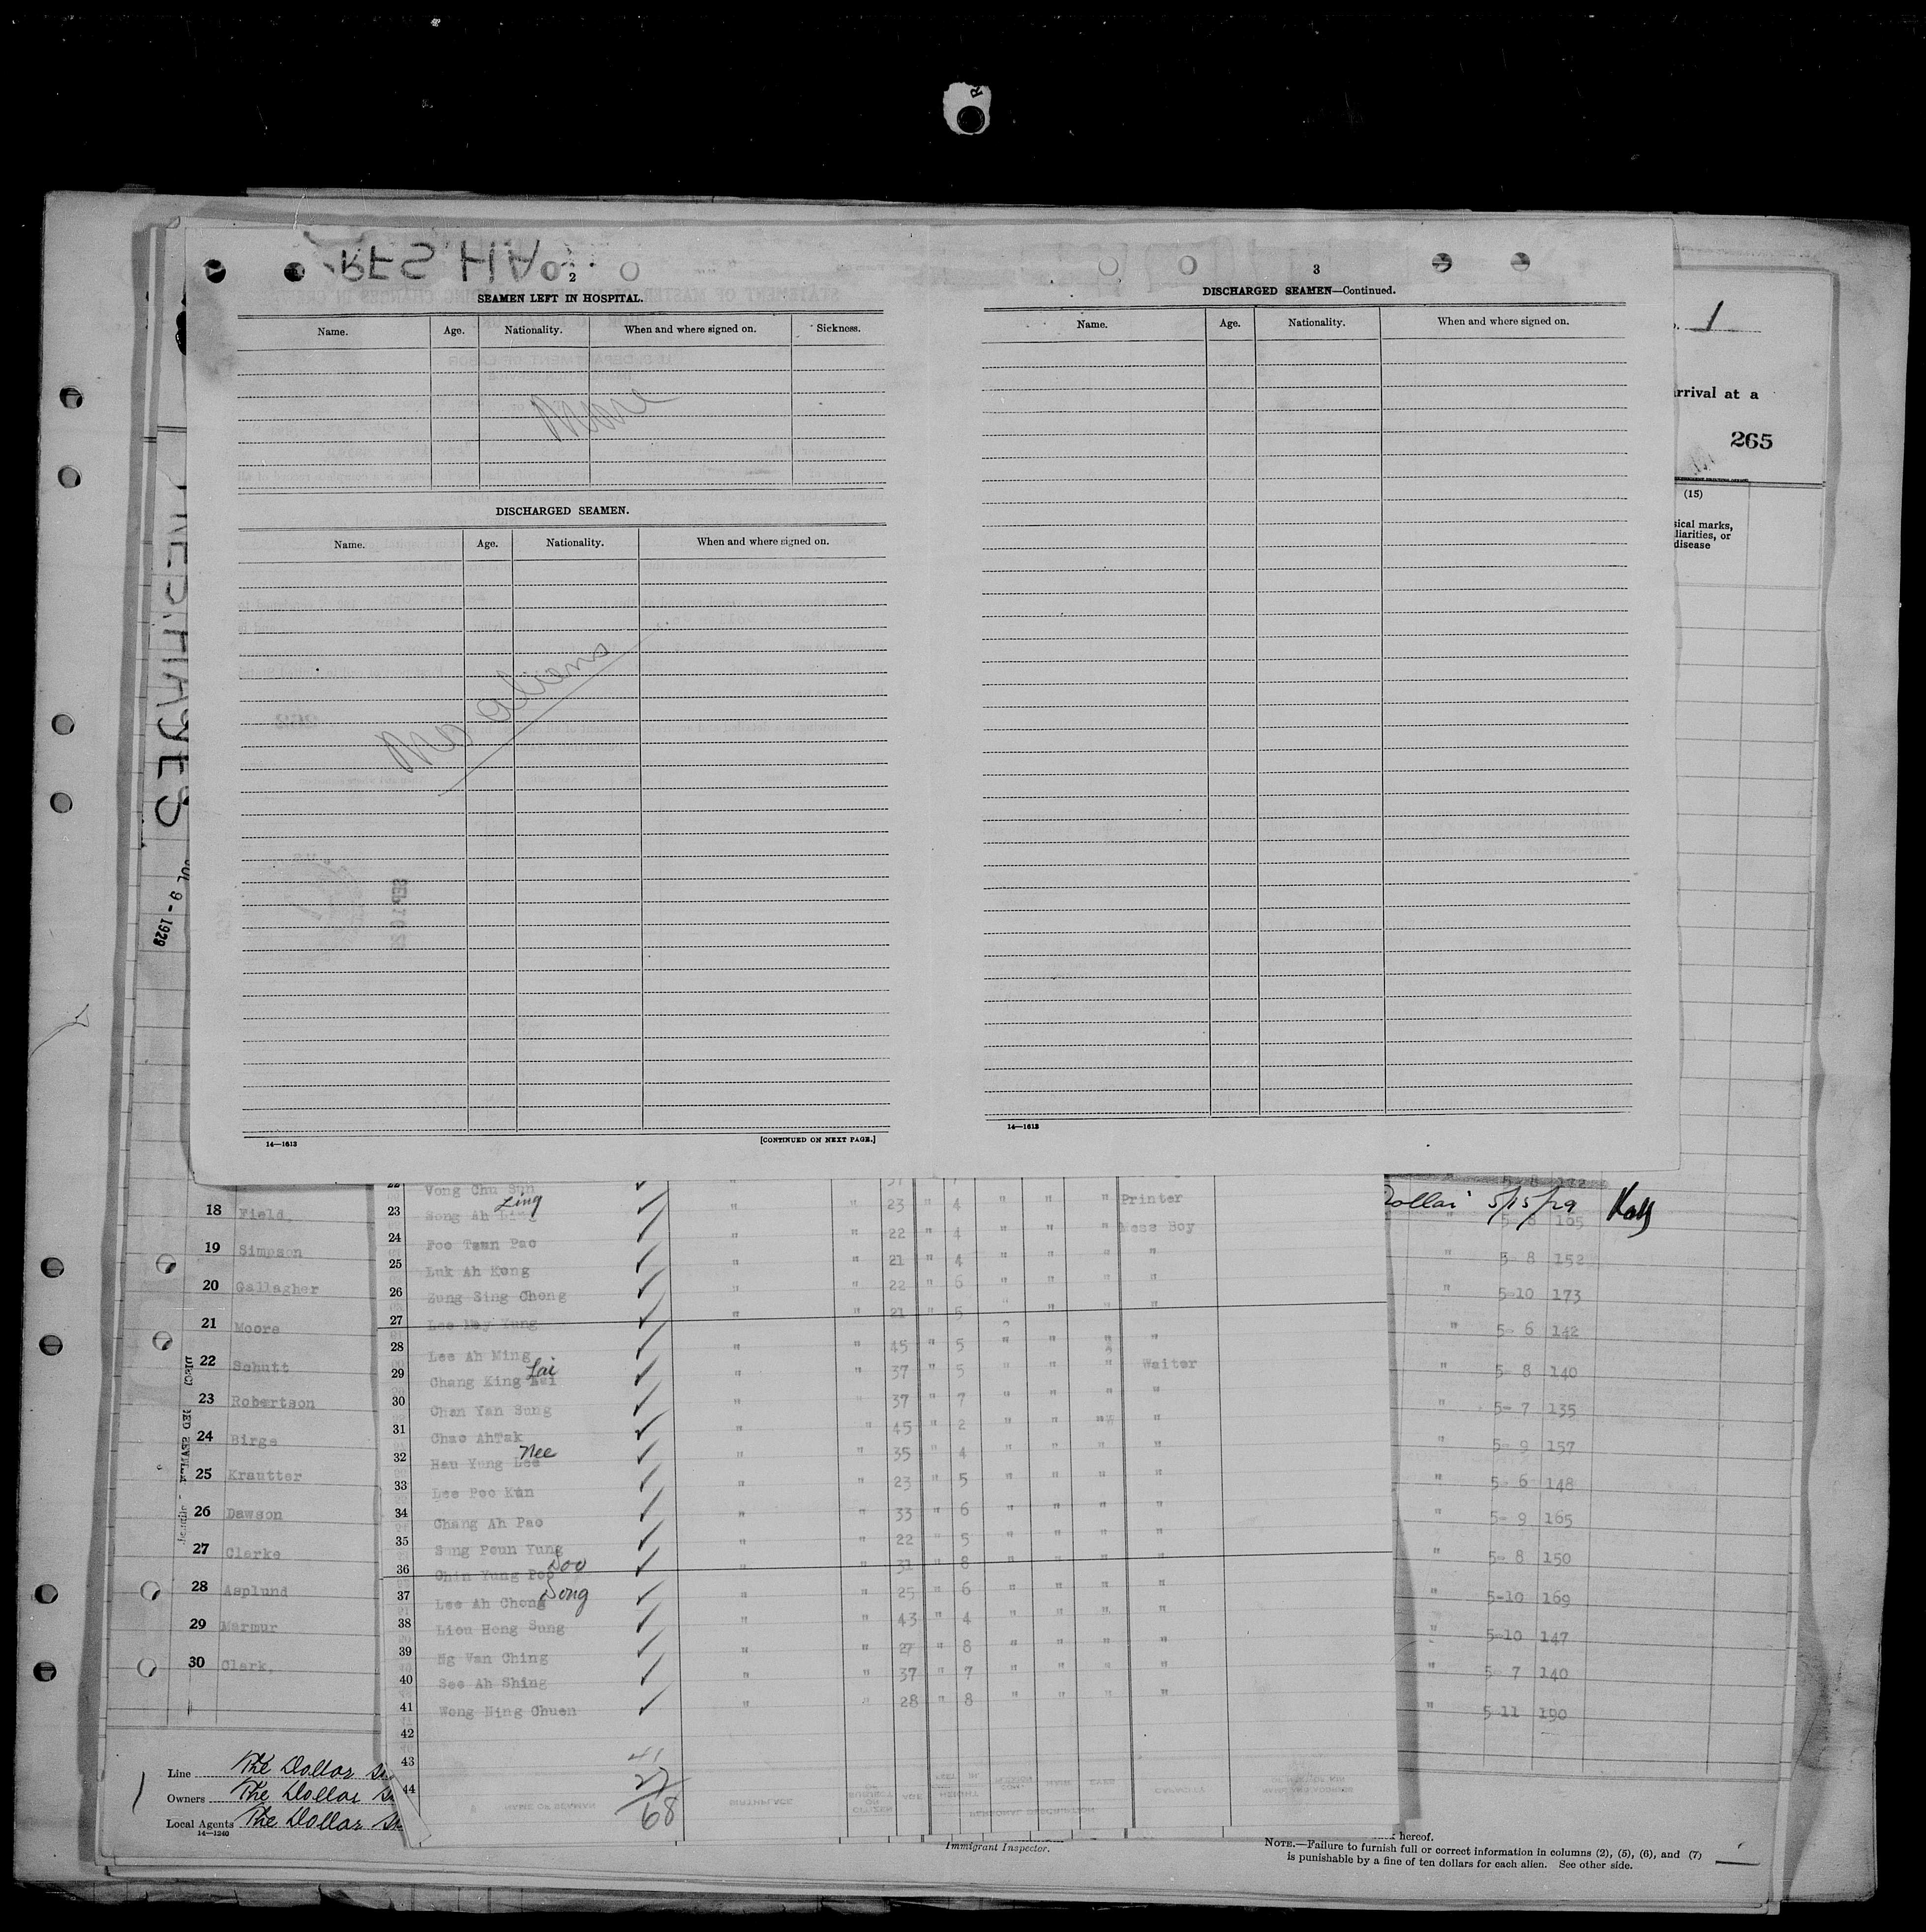 2
SEAMEN LEFT IN HOSPITAL.
Name. Age. Nationality. When and where signed on. Sickness.
None
DISCHARGED SEAMEN.
Name. Age. Nationality. When and where signed on.
No aliens
14—1613
[CONTINUED ON NEXT PAGE.]
3
DISCHARGED SEAMEN—Continued.
Name. Age. Nationality. When and where signed on.
14—1613
1
rrival at a
265
(15)
sical marks,
liarities, or
disease
PRES. HAYES
JUL 9 - 1929
18 Field,
19 Simpson
20 Gallagher
21 Moore
22 Schutt
23 Robertson
24 Birge
25 Krautter
26 Dawson
27 Clarke
28 Asplund
29 Marmur
30 Clark,
22 Vong Chu Sun
23 Song Ah Ling Ling " " 23 " 4 " " " Printer
24 Foo Tsun Pao " " 22 " 4 " " " Mess Boy
25 Luk Ah Kong " " 21 " 4 " " " "
26 Zung Sing Chong " " 22 " 6 " " " "
27 Lee May Yung " " 21 " 5 " " " "
28 Lee Ah Ming " " 45 " 5 " " " "
29 Chang King Lai " " 37 " 5 " " " Waiter
30 Chen Yan Sung " " 37 " 7 " " " "
31 Chao AhTak " " 45 " 2 " " " "
32 Hau Yung Lee Nee " " 35 " 4 " " " "
33 Lee Poo Kun " " 23 " 5 " " " "
34 Chang Ah Pao " " 33 " 6 " " " "
35 Sung Poun Yung " " 22 " 5 " " " "
36 Chin Yung Poo Doo " " 31 " 8 " " " "
37 Lee Ah Chong Dong " " 25 " 6 " " " "
38 Liou Hong Sung " " 43 " 4 " " " "
39 Ng Van Ching " " 27 " 8 " " " "
40 See Ah Shing " " 37 " 7 " " " "
41 Wong Ning Chuen " " 28 " 8 " " " "
42
43
44
41
27
68
Dollar 5/15/29
" 5- 8 165
" 5- 8 152
" 5-10 173
" 5- 6 142
" 5- 8 140
" 5- 7 135
" 5- 9 157
" 5- 6 148
" 5- 9 165
" 5- 8 150
" 5-10 169
" 5-10 147
" 5- 7 140
" 5-11 190
Line The Dollar
Owners The Dollar
Local Agents The Dollar
14—1240
Immigrant Inspector.
hereof.
NOTE.—Failure to furnish full or correct information in columns (2), (5), (6), and (7)
is punishable by a fine of ten dollars for each alien. See other side.